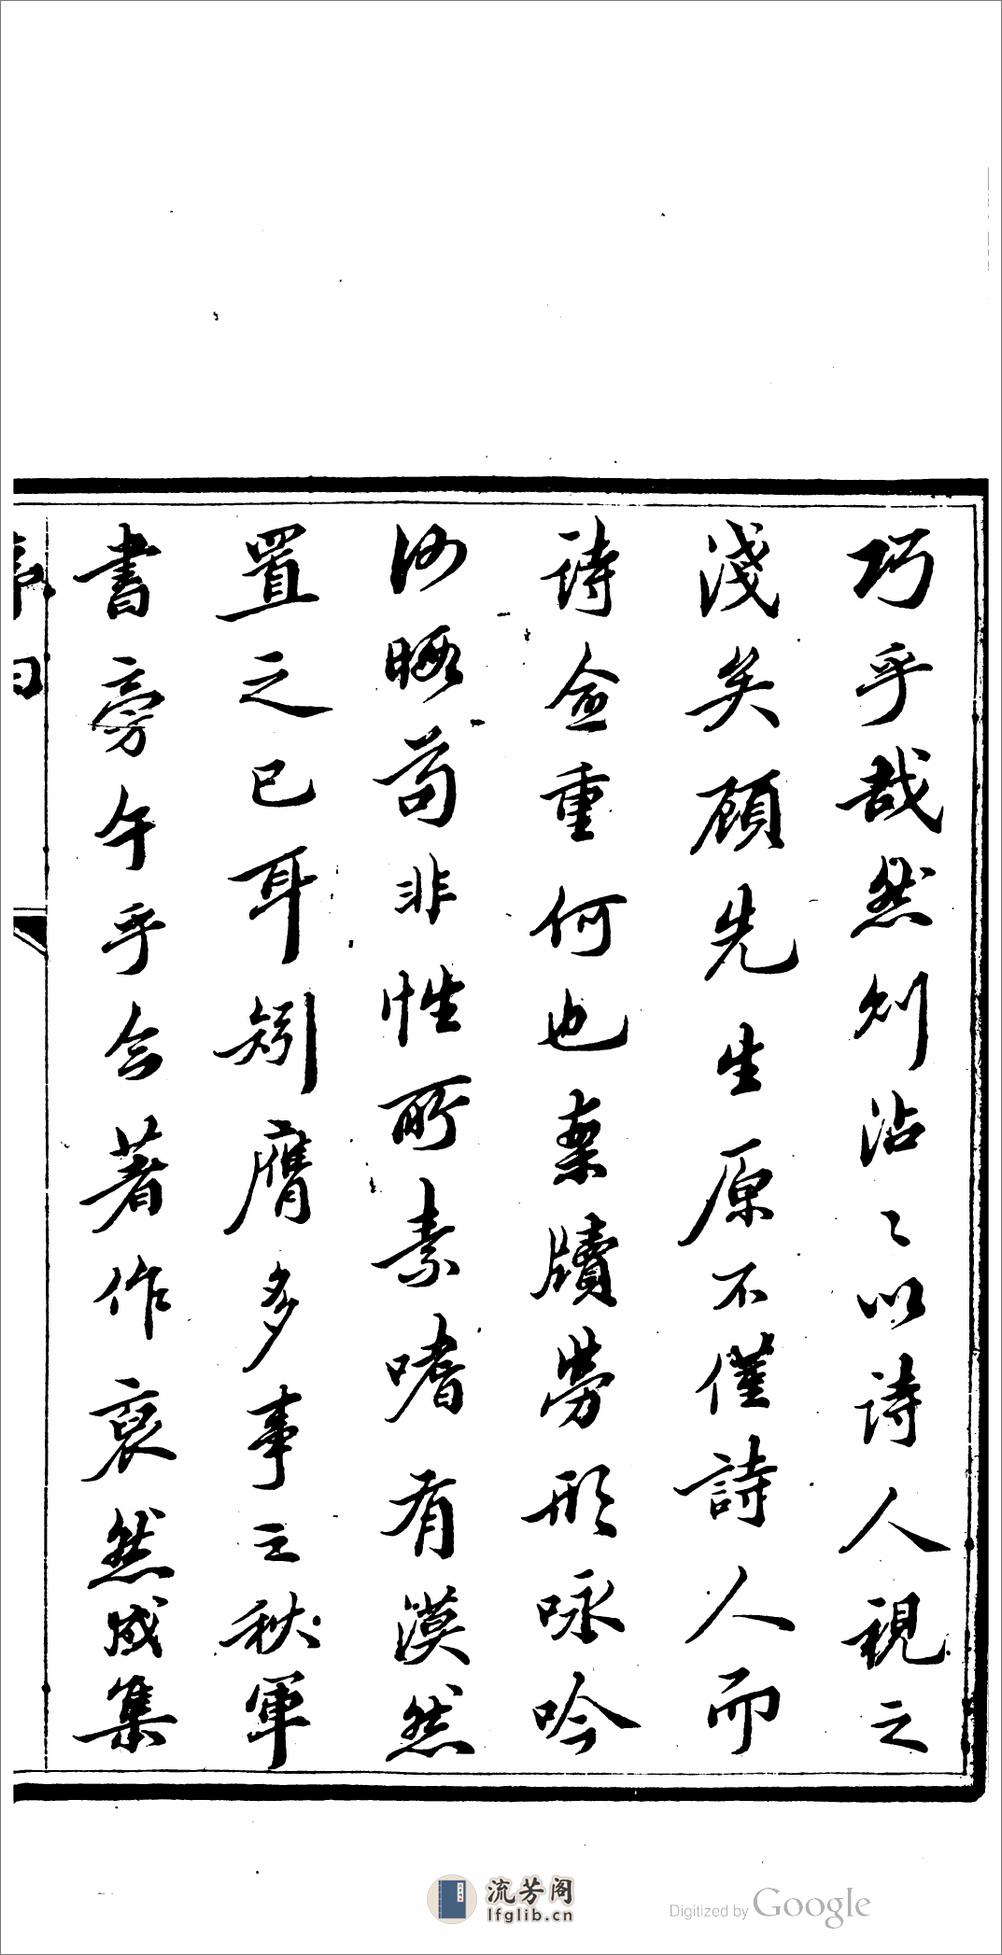 巧乎哉然則沾〻以詩人視之
淺矣顧先生原不僅詩人而
詩僉重何也案牘勞形咏吟
少暇苟非性所素嗜有漠然
置之已耳矧膺多事之秋軍
書旁午乎今著作裒然成集
流芳阁
lfglib.cn
Digitized by Google